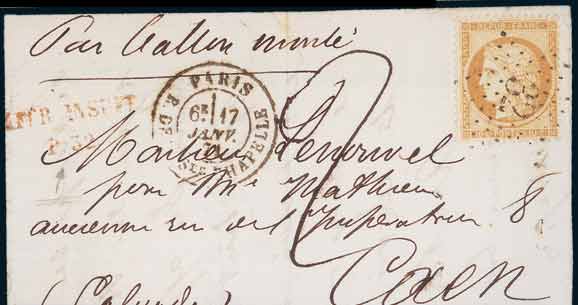 Par Ballon monté
REPUB. FRANC.
PARIS
6E 17
JANV.
R. DE STE CHAPELLE
AFFR. INSUFF.
P. 32
2
Monsieur Lenormel
pour Mr Mathieu
ancienne rue de l'Impératrice 8
Caen
(Calvados)